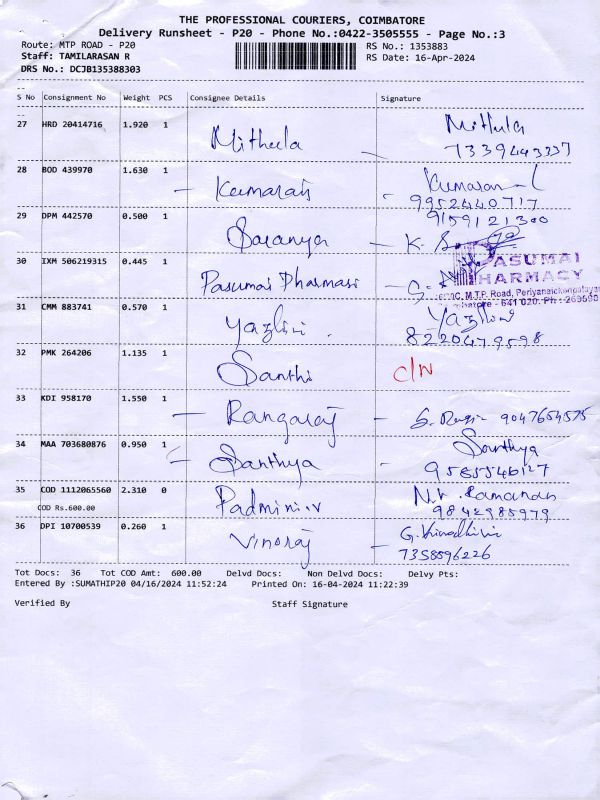 THE PROFESSIONAL COURIERS, COIMBATORE
Delivery Runsheet - P20 - Phone No.:0422-3505555 - Page No.:3
Route: MTP ROAD - P20
RS No.: 1353883
Staff: TAMILARASAN R
RS Date: 16-Apr-2024
DRS No.: DCJB135388303
S No Consignment No Weight PCS Consignee Details Signature
27 HRD 20414716 1.920 1 Mithula Mithula
7339443337
28 BOD 439970 1.630 1 Kumaran Kumaran
9952440717
9159121300
29 DPM 442570 0.500 1 Saranya K.
30 IXM 506219315 0.445 1 Pasumai Pharmasi
PASUMAI
PHARMACY
M.T.P. Road, Periyanaickenpalayam
641 020. Ph:
31 CMM 883741 0.570 1 Yazlini
8220479598
32 PMK 264206 1.135 1 Santhi C/N
33 KDI 958170 1.550 1 Rangaraj 9047654575
34 MAA 703680876 0.950 1 Santhya Santhya
9585546127
35 COD 1112065560 2.310 0 Padmini.v N.V. Ramanan
COD Rs.600.00 9842985979
36 DPI 10700539 0.260 1 Vinoraj G.
7358596226
Tot Docs: 36 Tot COD Amt: 600.00 Delvd Docs: Non Delvd Docs: Delvy Pts:
Entered By :SUMATHIP20 04/16/2024 11:52:24 Printed On: 16-04-2024 11:22:39
Verified By Staff Signature